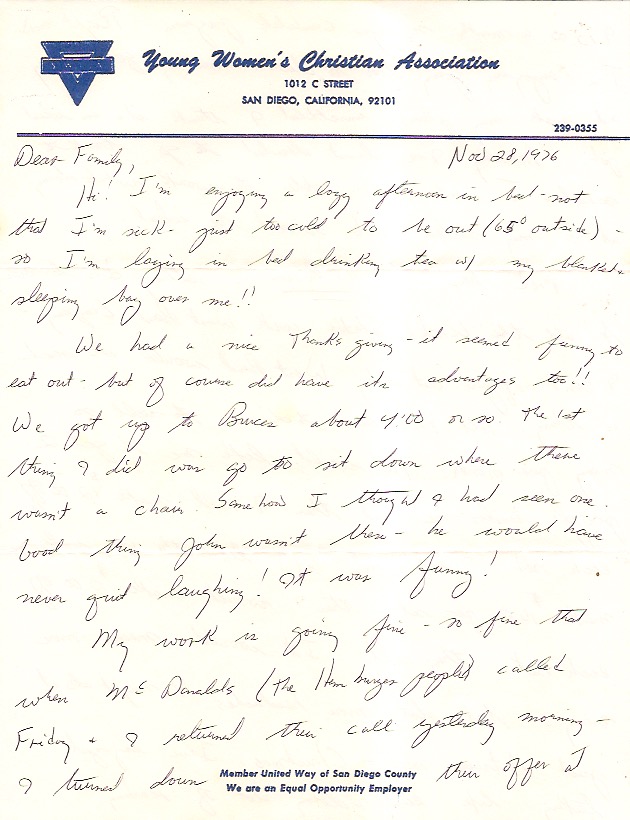 YWCA
Young Women's Christian Association
1012 C STREET
SAN DIEGO, CALIFORNIA, 92101
239-0355
Dear Family,
Nov 28, 1976
Hi! I'm enjoying a lazy afternoon in bed - not
that I'm sick - just too cold to be out (65° outside) -
so I'm laying in bed drinking tea w/ my blanket &
sleeping bag over me!!
We had a nice Thanksgiving - it seemed funny to
eat out - but of course did have its advantages too!!
We got up to Bruces about 4:00 or so. The 1st
thing I did was go to sit down where there
wasn't a chair. Somehow I thought I had seen one.
Good thing John wasn't there - he would have
never quit laughing! It was funny!
My work is going fine - so fine that
when McDonalds (the Hamburger people) called
Friday & I returned their call yesterday morning -
I turned down their offer
Member United Way of San Diego County
We are an Equal Opportunity Employer